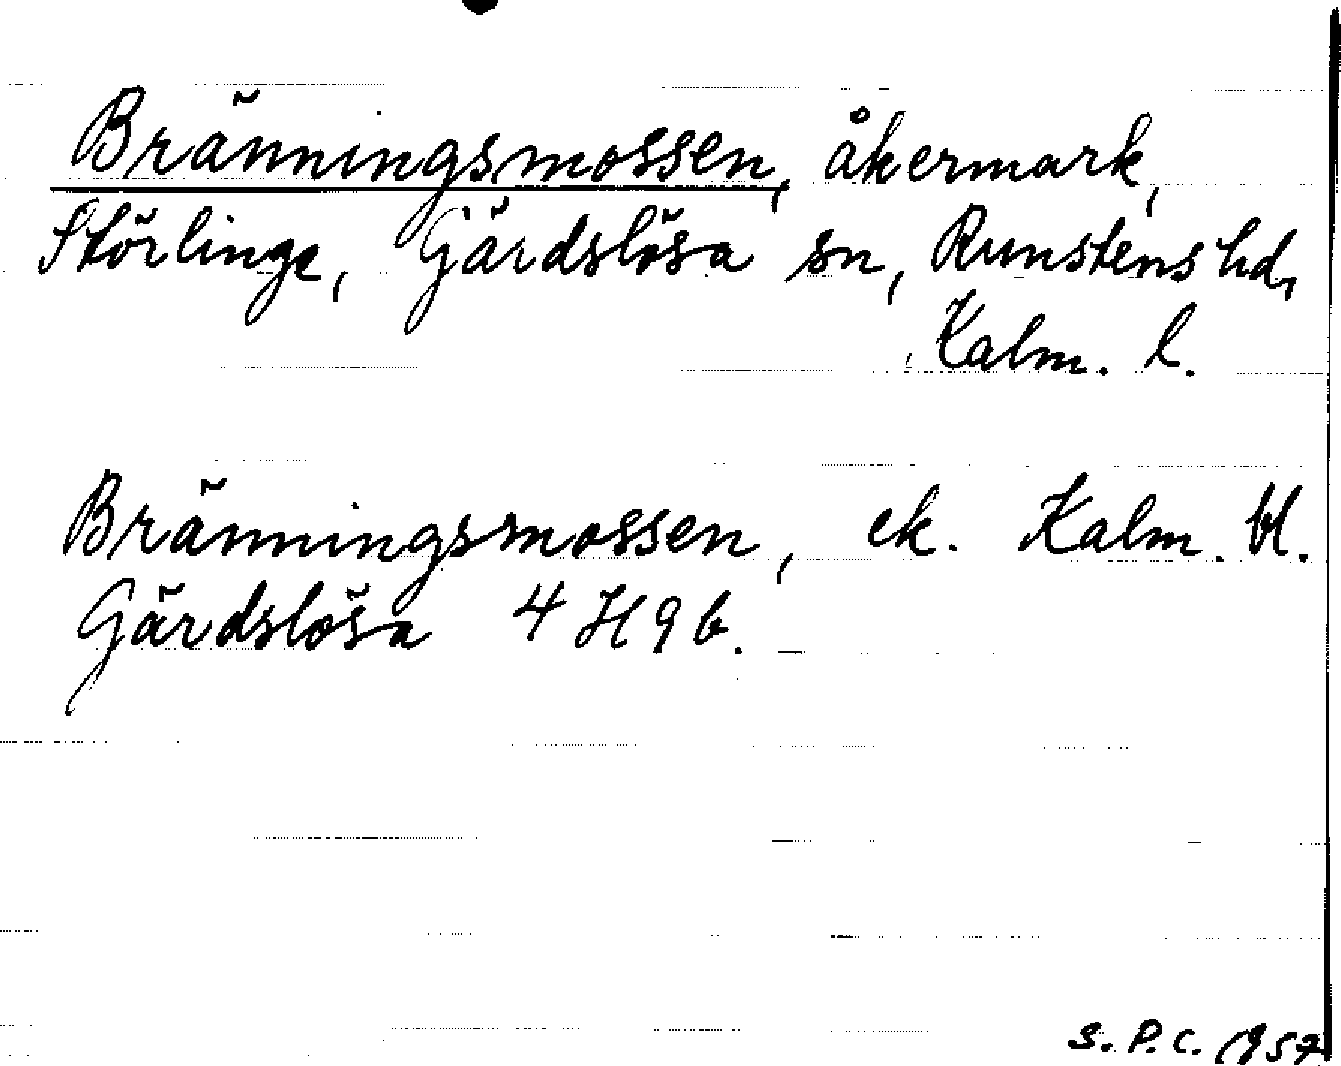 Bränningsmossen, åkermark,
Störlinge, Gärdslösa sn, Runstens hd,
Kalm. l.
Bränningsmossen, ek. Kalm. bl.
Gärdslösa 4 H 9 b.
S.P.C. 1957